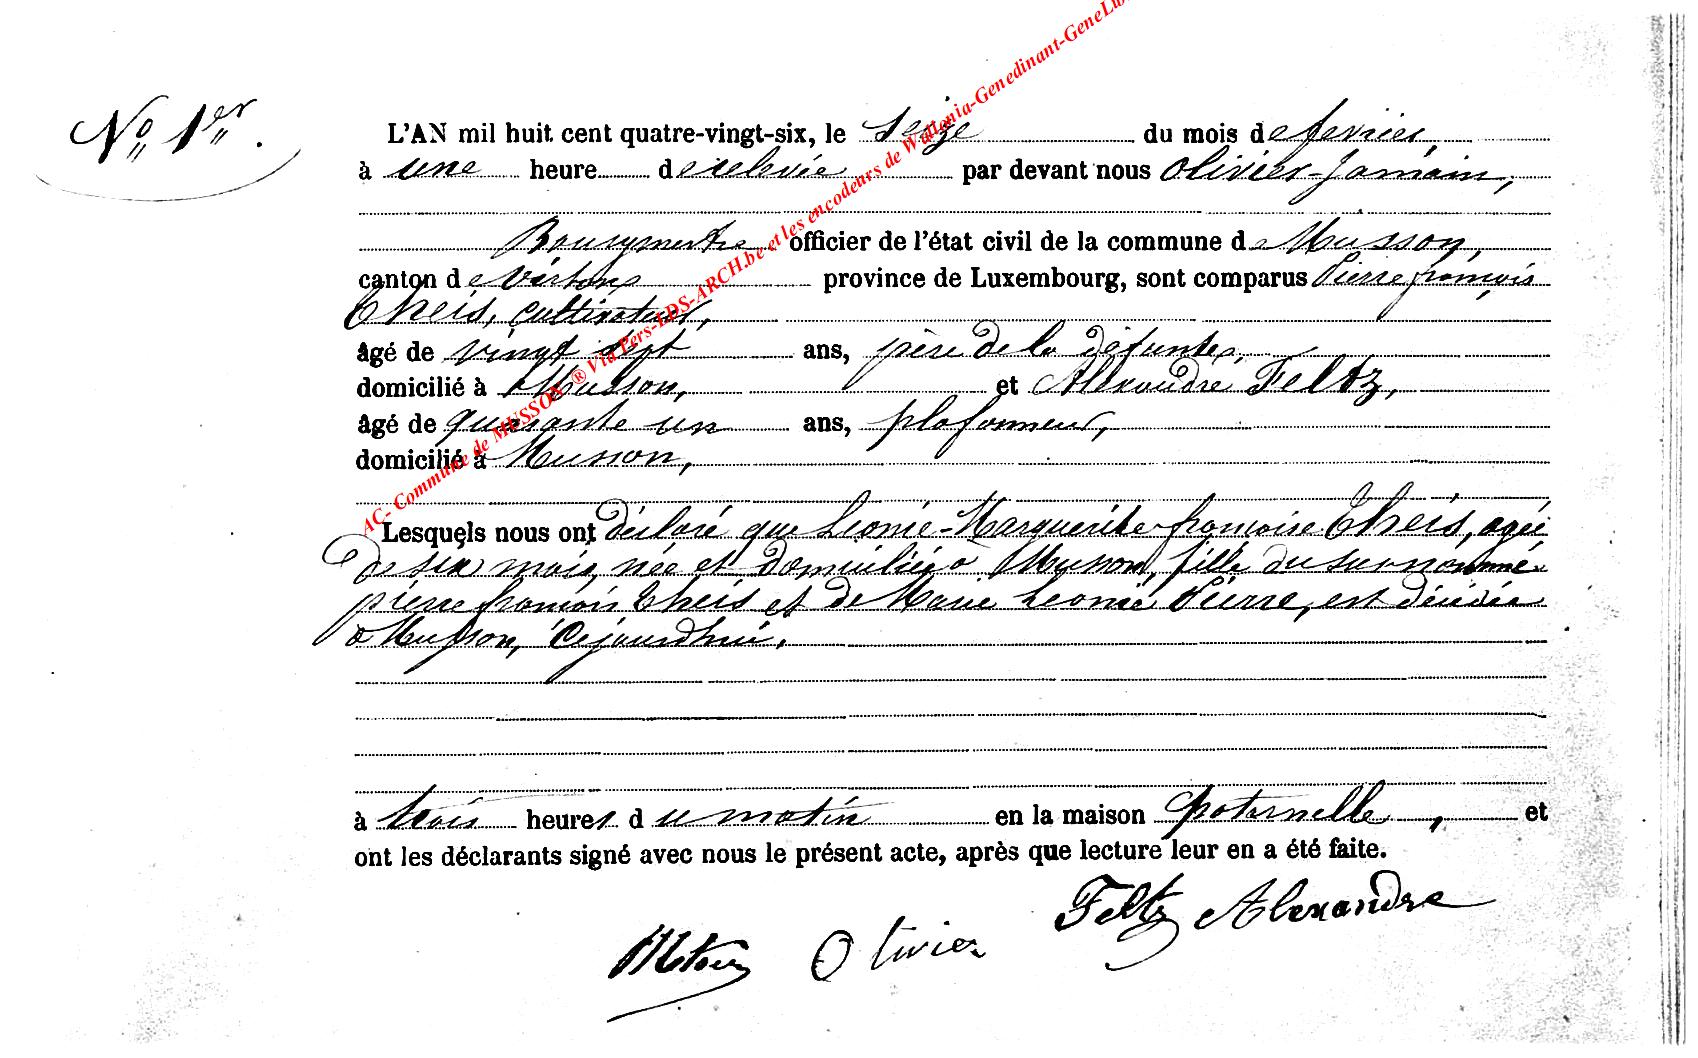 N° 1er.
L'AN mil huit cent quatre-vingt-six, le seize du mois de fevrier,
à une heure de relevée par devant nous Olivier-Jamain,
Bourgmestre officier de l'état civil de la commune de Musson,
canton de Virton, province de Luxembourg, sont comparus Pierre françois
Theis, cultivateur,
âgé de vingt sept ans, père de la défunte,
domicilié à Musson, et Alexandre Feltz,
âgé de quarante un ans, plafonneur,
domicilié à Musson,
Lesquels nous ont déclaré que Léonie-Marguerite françoise Theis, agée
de six mois, née et domiciliée à Musson, fille du surnommé
pierre françois Theis et de Marie Leonie Pierre, est décédée
à Musson, Cejourdhui,
à trois heures du matin en la maison paternelle, et
ont les déclarants signé avec nous le présent acte, après que lecture leur en a été faite.
Feltz Alexandre
Olivier
AC- Commune de MUSSON ® Via Pers-LDS-ARCH.be et les encodeurs de Wallonia-Genedinant-GeneLux